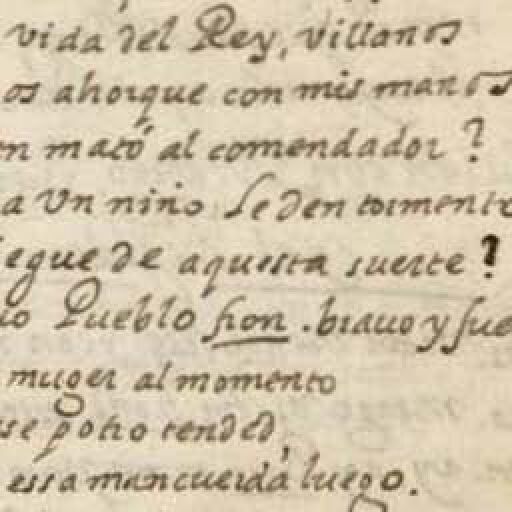 vida del Rey, villanos
os ahorque con mis manos
en mató al comendador?
a Un niño le den tormento
iegue de aquesta suerte?
Pueblo fion. brauo y fue
muger al momento
se potro tended,
essa mancuerda luego.